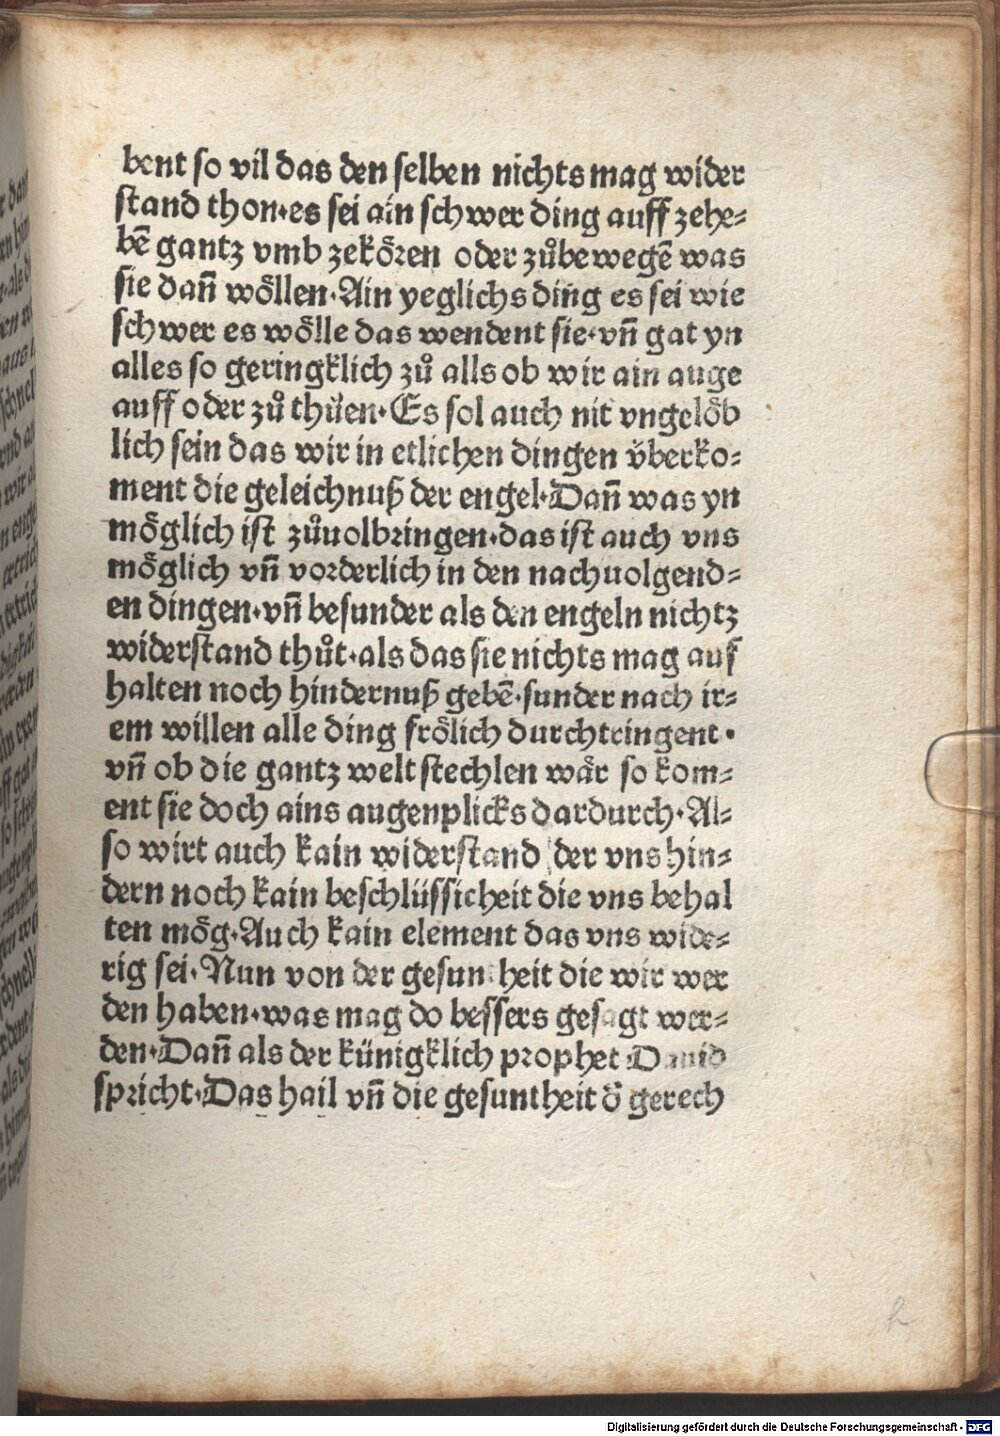 bent so vil das den selben nichts mag wider
stand thon·es sei ain schwer ding auff zehe⸗
bē gantz vmb zekoͤꝛen oder zuͦbewegē was
sie dañ woͤllen·Ain yeglichs ding es sei wie
schwer es woͤlle das wendent sie·vñ gat yn
alles so geringklich zuͦ alls ob wir ain auge
auff oder zuͦ thuͤen·Es sol auch nit vngeloͤb
lich sein das wir in etlichen dingen v̈berko⸗
ment die geleichnuß der engel·Dañ was yn
moͤglich ist zuͦuolbꝛingen·das ist auch vns
moͤglich vñ voꝛderlich in den nachuolgend⸗
en dingen·vñ besunder als den engeln nichtz
widerstand thuͦt·als das sie nichts mag auf
halten noch hindernuß gebē·sunder nach ir⸗
em willen alle ding froͤlich durchtringent·
vñ ob die gantz welt stechlen waͤr so kom⸗
ent sie doch ains augenplicks dardurch·Al⸗
so wirt auch kain widerstand der vns hin⸗
dern noch kain beschlüssicheit die vns behal
ten moͤg·Auch kain element das vns wide⸗
rig sei·Nun von der gesuntheit die wir wer
den haben·was mag do bessers gesagt wer⸗
den·Dañ als der künigklich prophet Dauid
spricht·Das hail vñ die gesuntheit d̄ gerech
h
Digitalisierung gefördert durch die Deutsche Forschungsgemeinschaft - DFG